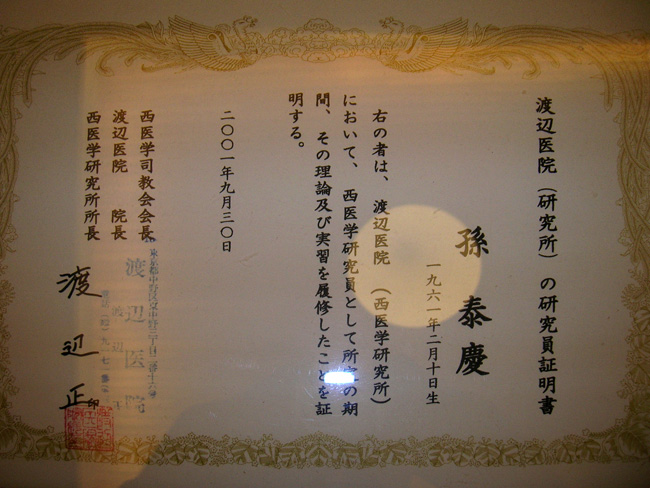 渡辺医院（研究所）の研究員証明書
孫泰慶
一九六一年二月十日生
右の者は、渡辺医院（西医学研究所）
において、西医学研究員として所定の期
間、その理論及び実習を履修したことを証
明する。
二〇〇一年九月三〇日
西医学司教会会長
渡辺医院　院長
西医学研究所所長
渡辺医院
渡辺正
印